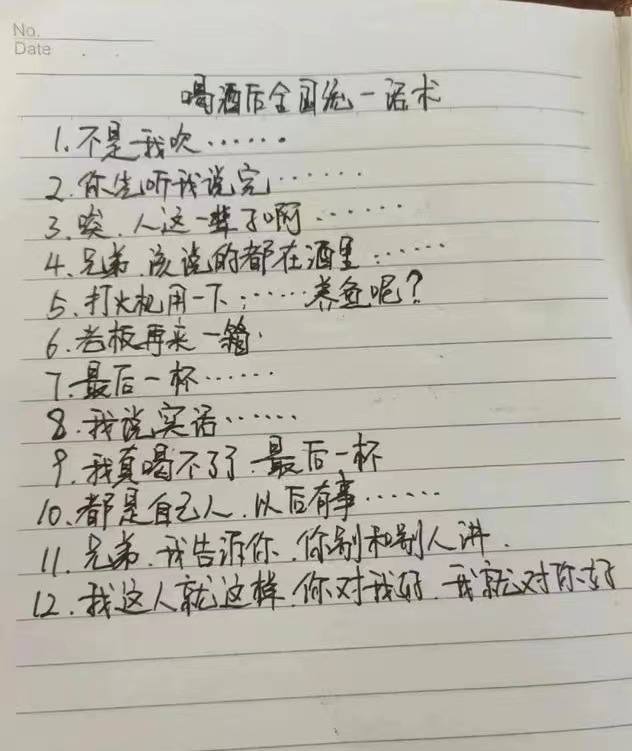 No.
Date
喝酒后全国统一话术
1.不是我吹……
2.你先听我说完……
3.唉.人这一辈子啊……
4.兄弟.该说的都在酒里……
5.打火机用一下……养鱼呢?
6.老板再来一箱.
7.最后一杯……
8.我说实话……
9.我真喝不了了.最后一杯
10.都是自己人.以后有事……
11.兄弟.我告诉你.你别和别人讲.
12.我这人就这样.你对我好.我就对你好